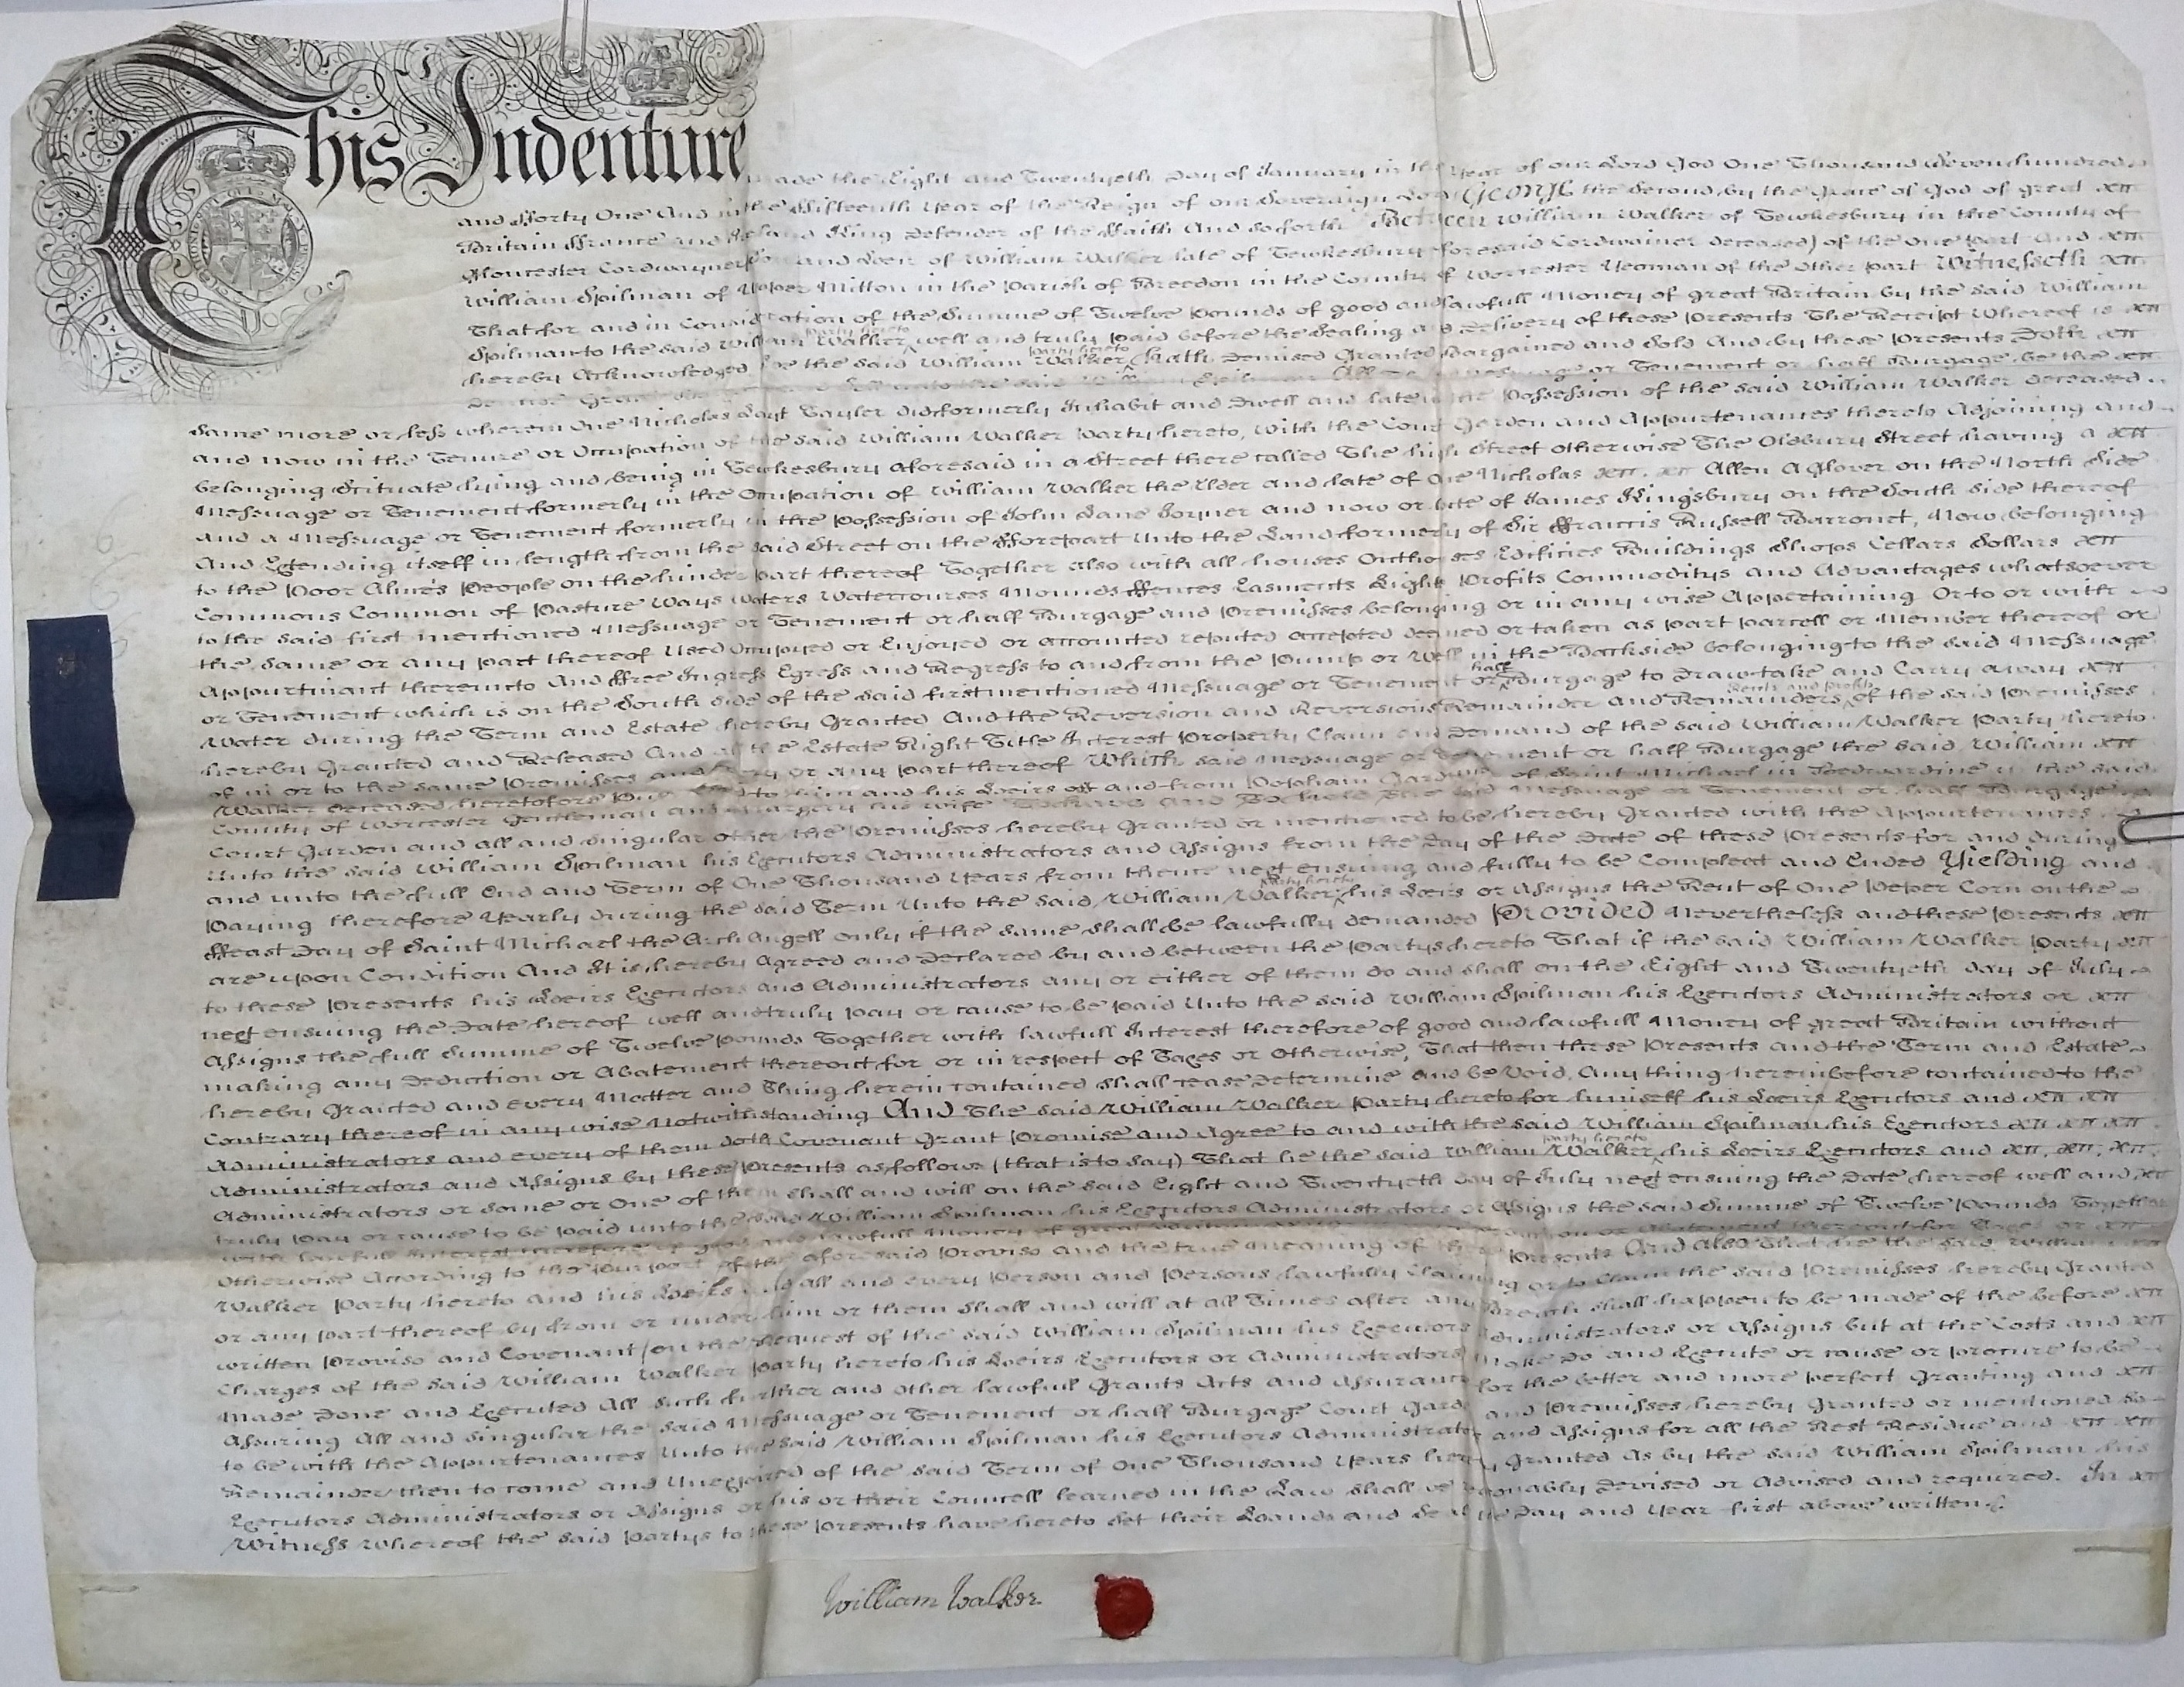 This Indenture made the Eight and Twentyeth Day of January in the Year of our Lord God One Thousand Seven hundred
and fforty One And in the ffifteenth Year of the Reign of our Sovereign Lord George the Second, by the Grace of God of great
Britain ffrance and Ireland King Defender of the ffaith And so forth Between William Walker of Tewkesbury in the County of
Gloucester Cordwayner and Heir of William Walker late of Tewkesbury aforesaid Cordwainer deceased) of the One part And
William Spilman of Upper Mitton in the Parish of Breedon in the County of Worcester Yeoman of the other part Witnesseth
That for and in Consideration of the Summe of Twelve Pounds of good and lawfull Money of great Britain by the said William
Spilman to the said William Walker party hereto well and truly paid before the Sealing and Delivery of these Presents The Receipt Whereof is
hereby Acknowledged he the said William Walker party hereto Hath Demised Granted Bargained and Sold And by these Presents Doth
Demise Grant unto the said William Spilman All Messuage or Tenement or half Burgage be the
Same more or less wherein One Nicholas Tayler did formerly Inhabit and Dwell and late in the Possession of the said William Walker deceased
and now in the Tenure or Occupation of the said William Walker Party hereto, with the Court Garden and Appurtenances thereto Adjoining and
belonging Scituate lying and being in Tewkesbury aforesaid in a Street there called The high Street otherwise The Oldbury Street having a
Messuage or Tenement formerly in the Occupation of William Walker the Elder and late of One Nicholas Allen a Glover on the North Side
and a Messuage or Tenement formerly in the Possession of John Lane Joyner and now or late of James Kingsbury on the South side thereof
And Extending itself in length from the said Street on the fforepart Unto the Land formerly of Sir ffrancis Russell Barronet, Now belonging
to the Poor Almes People on the hinder part thereof Together also with all houses Outhouses Edifices Buildings Shops Cellars Sollars
Commons Common of Pasture Ways Waters Watercourses Mounds ffences Easments Rights Profits Commoditys and Advantages whatsoever
to the said first mentioned Messuage or Tenement or half Burgage and Premisses belonging or in any wise Appertaining Or to or with
the Same or any part thereof Used Occupyed or Enjoyed or accounted reputed accepted deemed or taken as part parcell or Member thereof or
Appurtinant thereunto And ffree Ingress Egress and Regress to and from the Pump or Well in the Backside belonging to the said Messuage
or Tenement which is on the South side of the said first mentioned Messuage or Tenement or half Burgage to Draw take and Carry away
Water during the Term and Estate hereby Granted And the Reversion and Reversions Remainder and Remainders Rents and Profits of the said Premisses
hereby Granted and Released And all the Estate Right Title Interest Property Claim and Demand of the said William Walker Party hereto
of in or to the same Premisses and every or any part thereof Which said Messuage or Tenement or half Burgage the said William
Walker deceased heretofore to him and his Heirs of and from of Saint Michael in Bedwardine in the said
County of Worcester Gentleman and Margery his wife To have And To hold The said Messuage or Tenement or half Burgage
Court Garden and all and singular other the Premisses hereby Granted or mentioned to be hereby Granted with the Appurtenances
Unto the said William Spilman his Executors Administrators and Assigns from the Day of the Date of these Presents for and during
and unto the full End and Term of One Thousand Years from thence next ensuing and fully to be Compleat and Ended Yielding and
Paying therefore Yearly during the said Term Unto the said William Walker party hereto his Heirs or Assigns the Rent of One Peper Corn on the
ffeast Day of Saint Michael the Arch Angell only if the same shall be lawfully demanded Provided Nevertheless and these Presents
are upon Condition And It is hereby Agreed and Declared by and between the Partys hereto That if the said William Walker Party
to these Presents his Heirs Executors and Administrators any or either of them do and shall on the Eight and Twentyeth day of July
next ensuing the Date hereof well and truly pay or cause to be paid Unto the said William Spilman his Executors Administrators or
Assigns the full Summe of Twelve Pounds Together with lawfull Interest therefore of good and lawfull Money of great Britain without
making any Deduction or Abatement thereout for or in respect of Taxes or Otherwise, That then these Presents and the Term and Estate
hereby Granted and every Matter and Thing herein contained shall cease Determine and be Void, Any thing herein before contained to the
Contrary thereof in any wise Notwithstanding And The said William Walker Party hereto for himself his Heirs Executors and
Administrators and every of them doth Covenant Grant Promise and Agree to and with the said William Spilman his Executors
Administrators and Assigns by these Presents as follows (that is to say) That he the said William Walker party hereto his Heirs Executors and
Administrators or some or One of them shall and will on the said Eight and Twentyeth day of July next ensuing the Date hereof well and
truly Pay or cause to be paid unto the said William Spilman his Executors Administrators or Assigns the said Summe of Twelve Pounds Together
with lawfull Interest therefore of good and lawfull Money of great Britain or Abatement thereout for Taxes or
Otherwise According to the Purport of the aforesaid Proviso and the true meaning of these Presents And also That he the said William
Walker Party hereto and his Heirs and all and every Person and Persons lawfully Claiming or to Claim the said Premisses hereby Granted
or any part thereof by from or under him or them Shall and will at all Times after any Breach shall happen to be made of the before
written Proviso and Covenant (on the Request of the said William Spilman his Executors Administrators or Assigns but at the Costs and
Charges of the said William Walker Party hereto his Heirs Executors or Administrators) make do and Execute or cause or procure to be
made Done and Executed All such further and other lawfull Grants Acts and Assurances for the better and more perfect Granting and
Assuring All and singular the said Messuage or Tenement or half Burgage Court Garden and Premisses hereby Granted or mentioned so
to be with the Appurtenances Unto the said William Spilman his Executors Administrators and Assigns for all the Rest Residue and
Remainder then to come and Unexpired of the said Term of One Thousand Years hereby Granted As by the said William Spilman his
Executors Administrators or Assigns or his or their Councell learned in the Law shall be reasonably Devised or Advised and required. In
Witness whereof the said Partys to these Presents have hereto Set their Hands and Seals the Day and Year first above written
William Walker